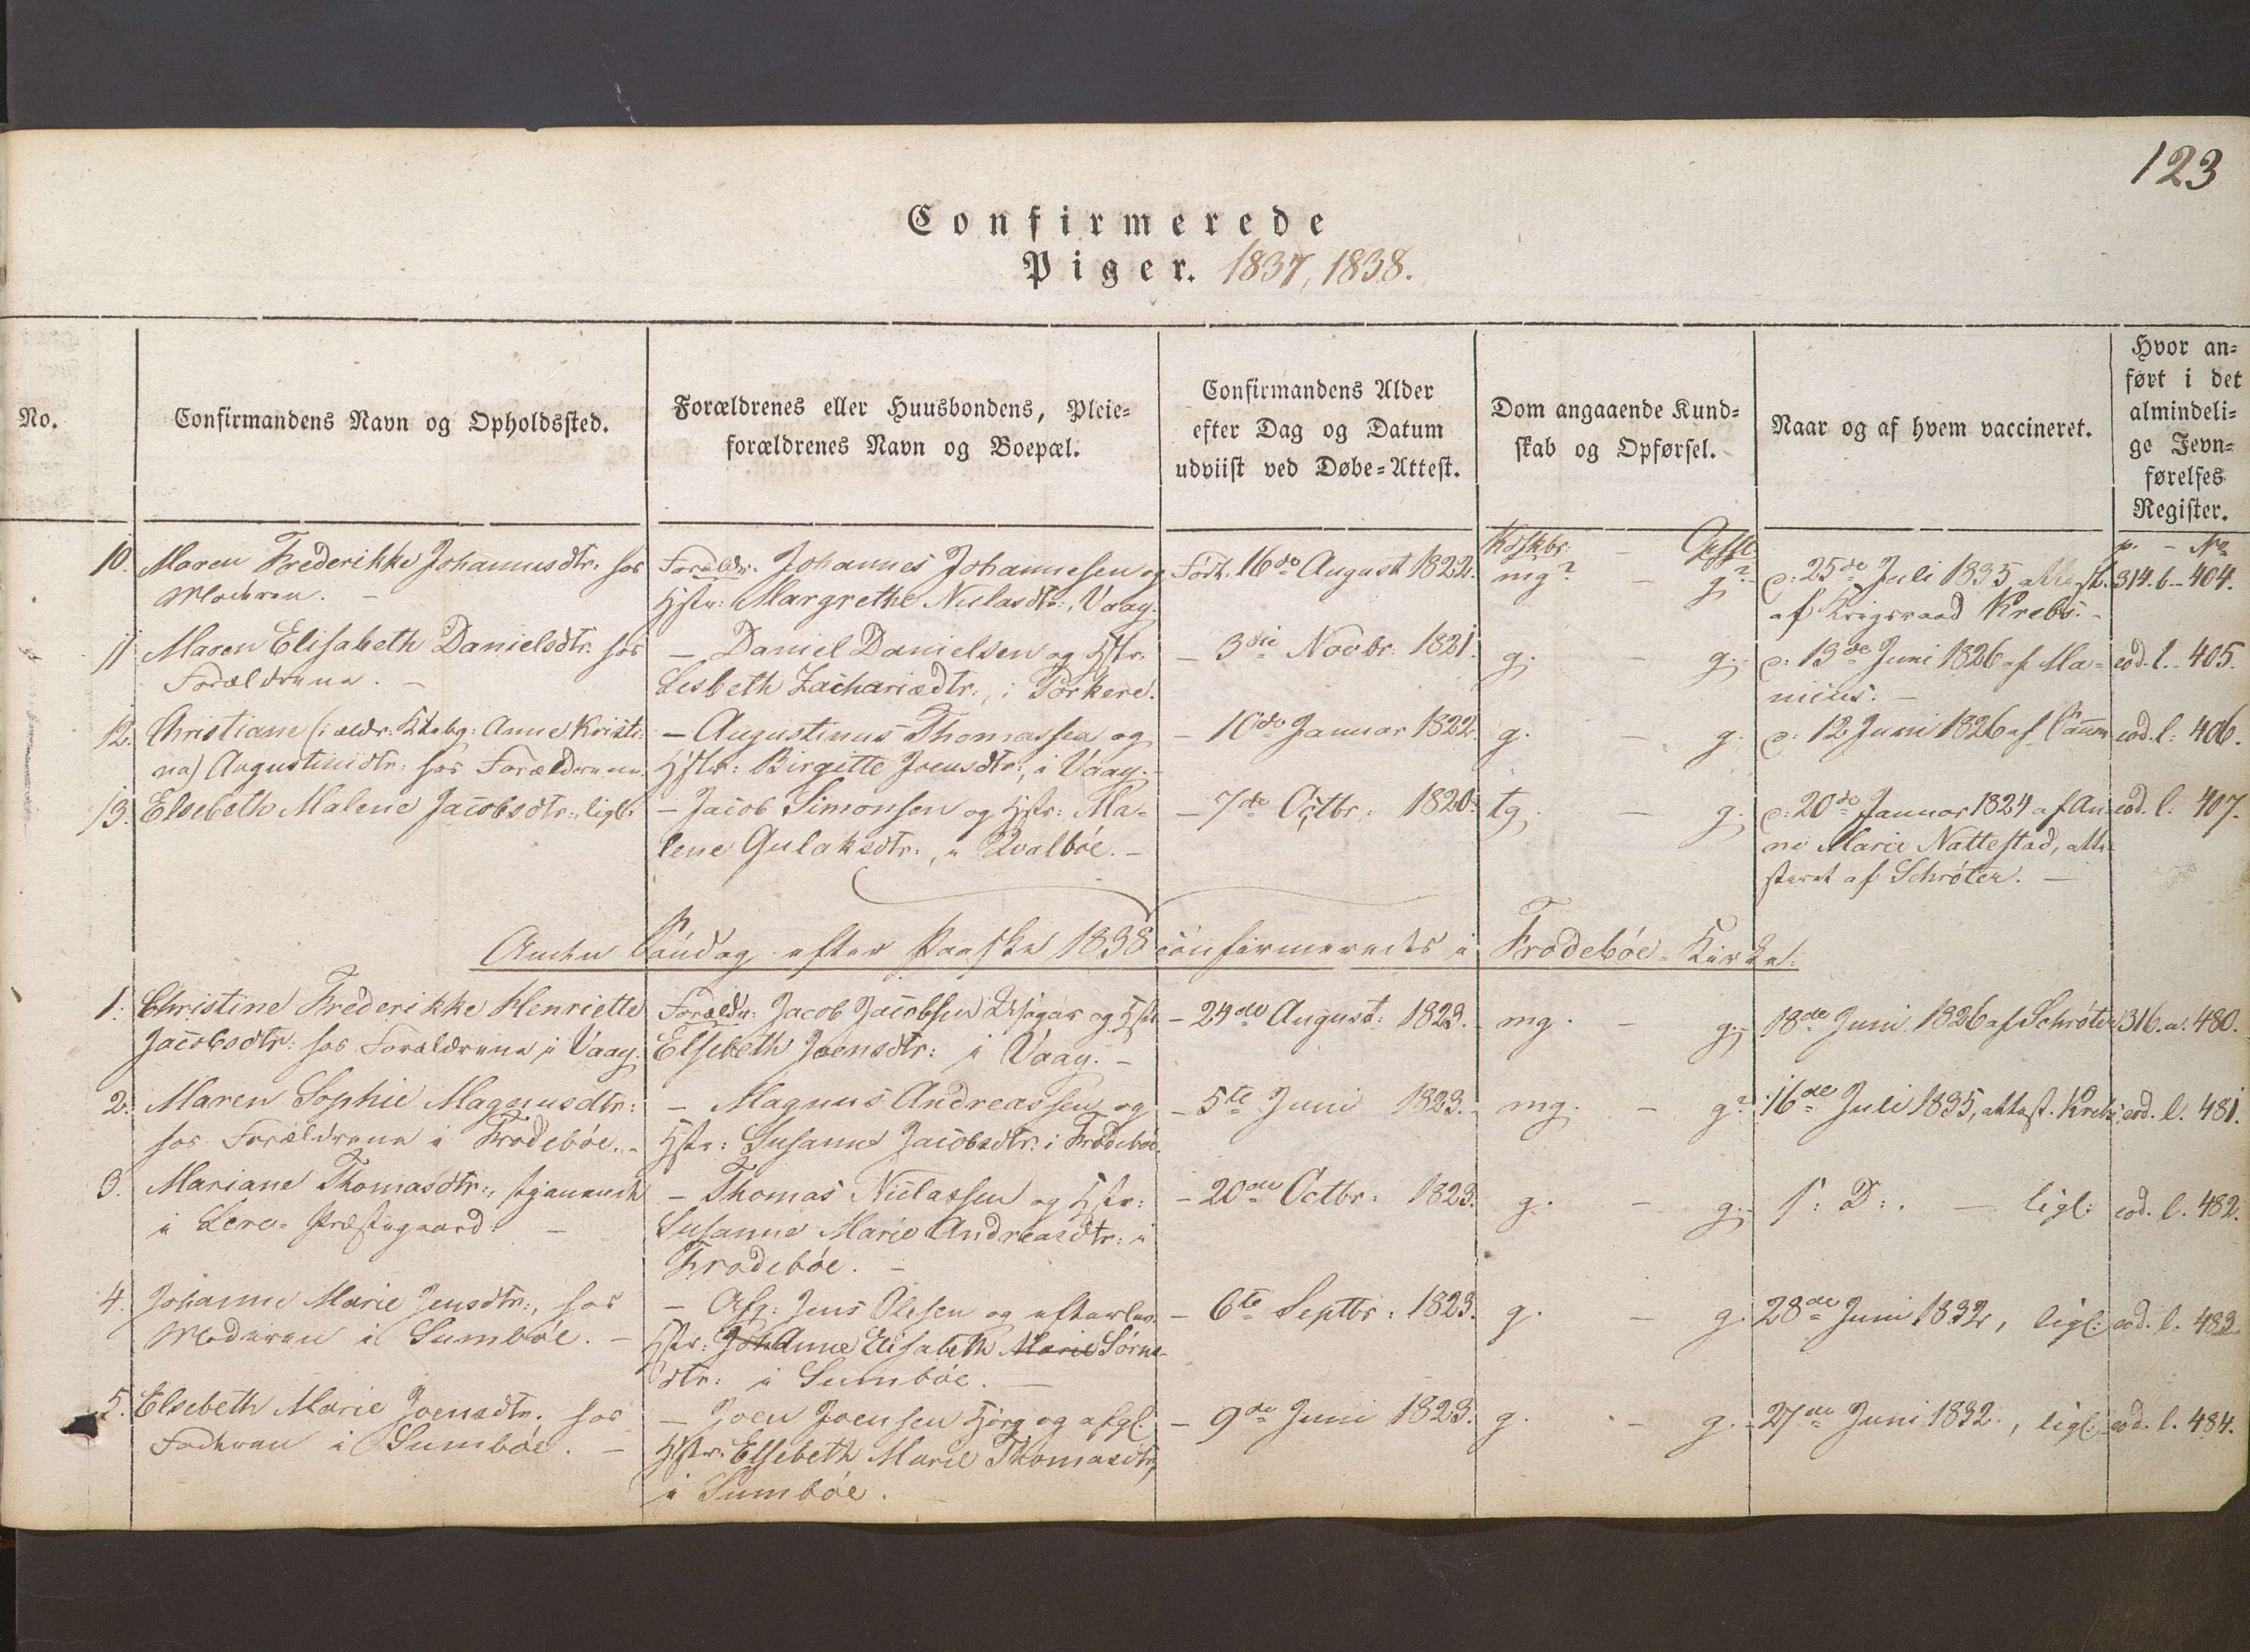 123
Confirmerede
Piger. 1837, 1838.
No.
Confirmandens Navn og Opholdssted.
Forældrenes eller Huusbondens, Pleie=
forældrenes Navn og Boepæl.
Confirmandens Alder
efter Dag og Datum
udviist ved Døbe=Attest.
Dom angaaende Kund=
skab og Opførsel.
Naar og af hvem vaccineret.
Hvor an=
ført i det
almindeli=
ge Jevn=
førelses
Register.
Kdskbr: – Opfsl.
p. – No
10. Maren Frederikke Johannusdtr: hos
Moderen. –
Forældr. Johannes Johannesen og
Hstr: Margrethe Niclasdtr:, Vaag.
Født. 16de August 1822.
mg? – g?
d: 25de Juli 1835 attest.
af Krigsraad Krebs. –
314. b – 404.
11 Maren Elisabeth Danielsdtr. hos
Forældrene. –
– Daniel Danielsen og Hstr.
Lisbeth Zachariædtr:, i Porkere.
– 3die Novbr: 1821.
g. – g.
d: 13de Juni 1826 af Ma=
nicus. –
eod. l. 405.
12. Christiane (i ældr. Ktebg: Anne Kristi=
na) Augustinidtr: hos Forældrene.
– Augustinus Thomassen og
Hstr: Birgitte Joensdtr:, i Vaag. –
– 10de Januar 1822.
g. – g.
d: 12 Juni 1826 af Samm
eod. l: 406.
13. Elsebeth Malene Jacobsdtr:, ligl.
– Jacob Simonsen og Hstr: Ma=
lene Gulaksdtr:, i Qvalbøe. –
– 7de Octbr: 1820.
tg. – g.
d: 20de Januar 1824 af An=
ne Marie Nattestad, atte=
steret af Schrøter. –
eod. l. 407.
Anden Søndag efter Paaske 1838 confirmeredes i Frodebøe-Kirke:
1. Christine Frederikke Henriette
Jacobsdtr: hos Forældrene i Vaag.
Forældr: Jacob Jacobsen og Hstr
Elsebeth Joensdtr: i Vaag. –
– 24de August: 1823.
mg. – g.
18de Juni 1826 af Schrøter
316. a. 480.
2. Maren Sophie Magnusdtr:
hos Forældrene i Frodebøe. –
– Magnus Andreassen og
Hstr: Susanne Jacobsdtr: i Frodebøe.
– 5te Juni 1823.
mg. – g?
16de Juli 1835, attest. Krebs,
eod. l. 481.
3. Mariane Thomasdtr:, tjenende
i Præstegaard. –
– Thomas Niclassen og Hstr:
Susanne Marie Andreasdtr: i
Frodebøe. –
– 20de Octbr: 1823.
g. – g.
s: D:. – ligl:
eod. l. 482.
4. Johanne Marie Jensdtr:, hos
Moderen i Sumbøe. –
– Afg: Jens Olesen og efterlev.
Hstr: Johanne Elisabeth Marie Sørens
dtr: i Sumbøe. –
– 6te Septbr: 1823.
g. – g.
28de Juni 1832, ligl:
eod. l. 483.
5. Elsebeth Marie Joensdtr. hos
Faderen i Sumbøe. –
– Joen Joensen Hörg og afgl.
Hstr. Elsebeth Marie Thomasdtr,
i Sumbøe. –
– 9de Juni 1823.
g. – g.
27de Juni 1832., ligl:
eod. l. 484.